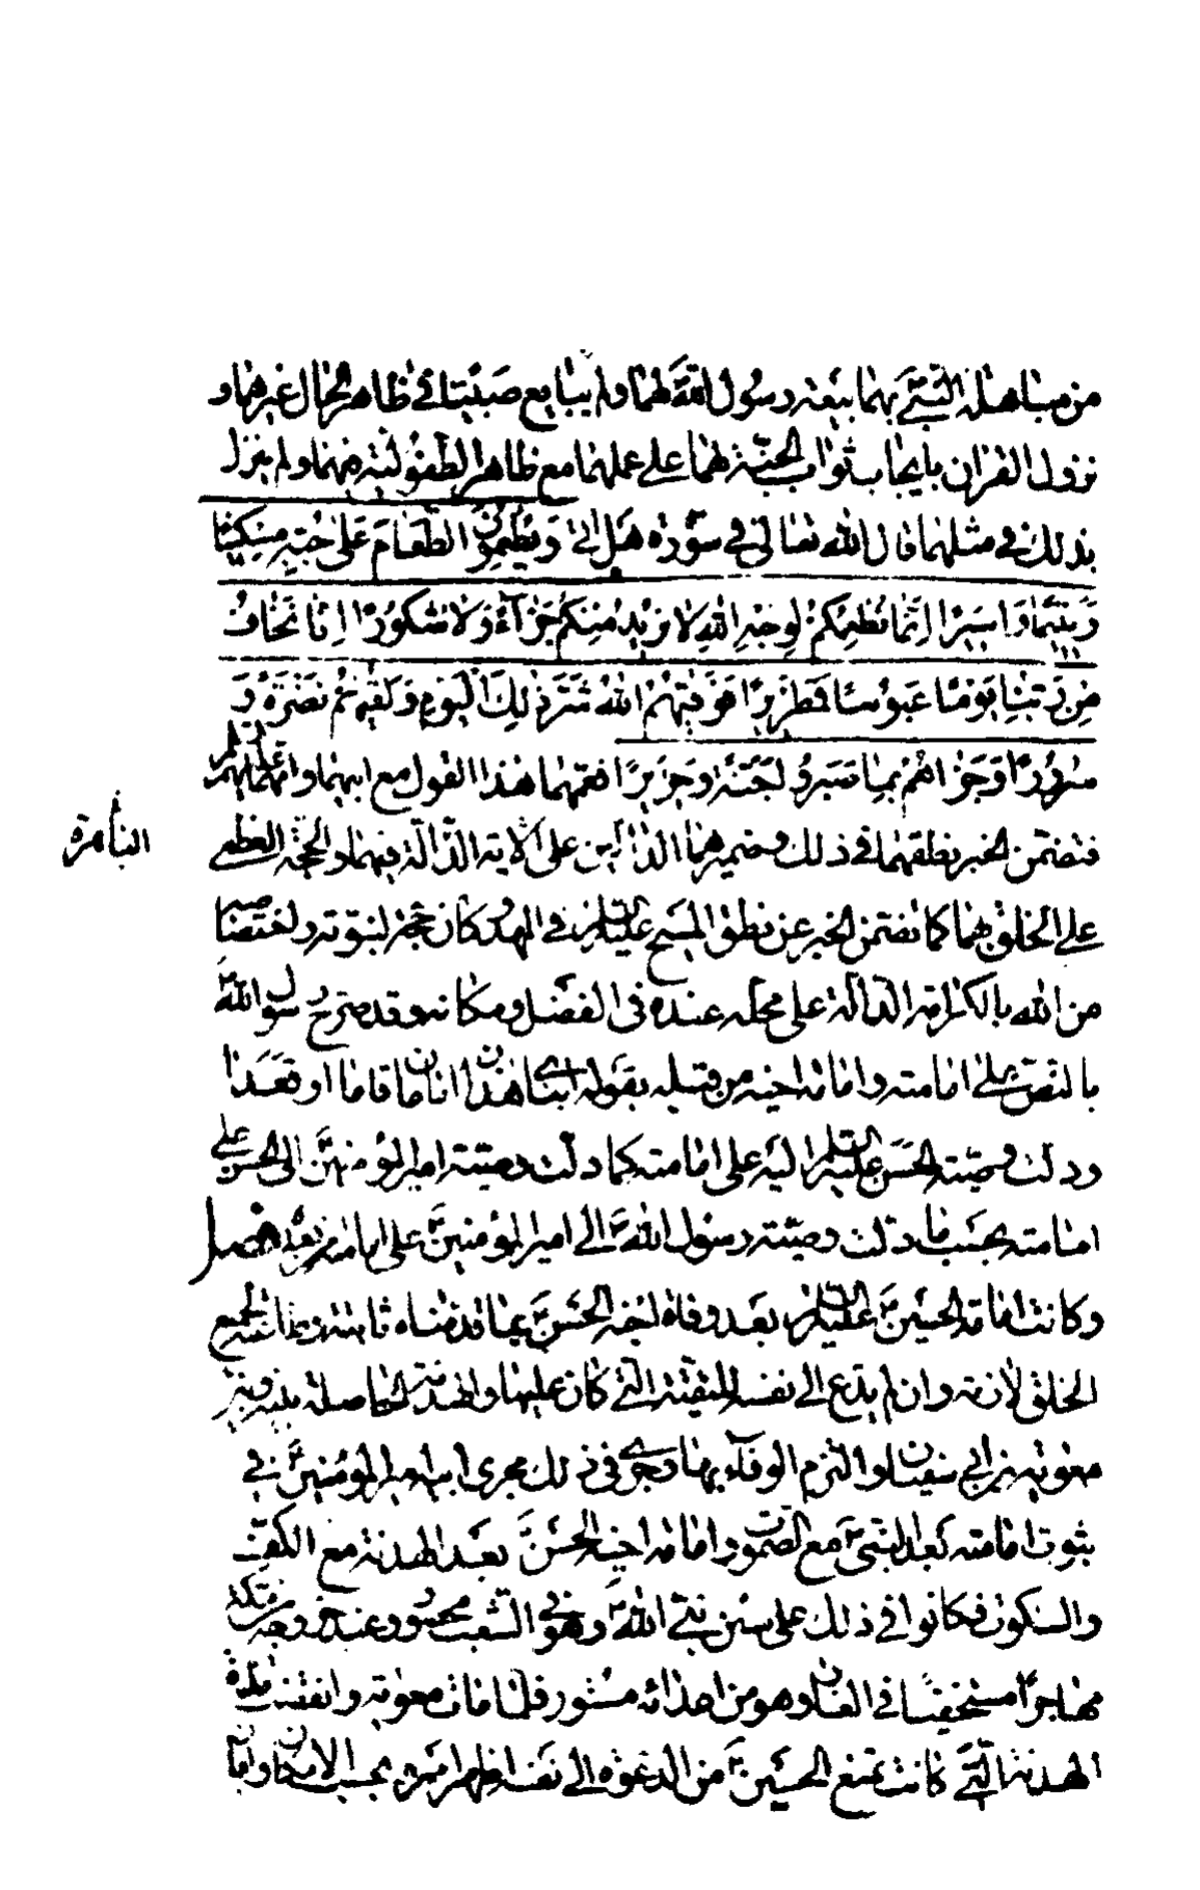 من مباهلة النبي بهما بيعة رسول الله لهما ولم يبايع صبيا في ظاهر الحال غيرهما و
نزول القران بايجاب ثواب الجنة لهما على عملهما مع ظاهر الطفولية منهما ولم ينزل
بذلك في مثلهما قال الله تعالى في سورة هل اتى وَيُطْعِمُونَ الطَّعَامَ عَلى حُبِّهِ مِسْكِينًا
وَّيَتِيمًا وَاَسِيرًا اِنَّمَا نُطْعِمُكُمْ لِوَجْهِ اللهِ لا نُرِيدُ مِنْكُمْ جَزَآءً وَلا شُكُورًا اِنَّا نَخَافُ
مِن رَبِّنَا يَوْمًا عَبُوسًا قَمْطَرِيرًا فَوَقيهُمُ اللهُ شَرَّ ذلِكَ الْيَوْمِ وَلَقّيهُمْ نَضْرَةً وَ
سُرُورًا وَجَزاهُمْ بِما صَبَرُوا جَنَّةً وَحَرِيرًا فعمهما هذا القول مع ابيهما وامهما عليهم السلم
فتضمن الخبر نطقهما في ذلك وضميرهما الدالين على الاية الدالة فيهما والحجة العظمى
على الخلق بهما كما تضمن الخبر عن نطق المسيح عليه السلم في المهد وكان حجة لنبوته واختصاصه
من الله بالكرامة الدالة على محله عنده في الفضل ومكانه وقد صرح رسول الله
بالنص على امامته وامامة اخيه من قبله بقوله ابناى هذان امامان قاما او قعدا
ودلت وصية الحسن عليه السلم اليه على امامته كما دلت وصية امير المؤمنين الى الحسن على
امامته بحسب ما دلت وصية رسول الله الى امير المؤمنين على امامته بعده فصل
وكانت امامة الحسين عليه السلم بعد وفاة اخيه الحسن بما قدمناه ثابتة وطاعته لجميع
الخلق لازمة وان لم يدع الى نفسه للتقية التي كان عليها والهدنة الحاصلة بينه وبين
معوية بن ابي سفيان والتزم الوفاء بها وجرى في ذلك مجرى ابيه امير المؤمنين في
ثبوت امامته بعد النبي مع الصموت وامامة اخيه الحسن بعد الهدنة مع الكف
والسكوت فكانوا في ذلك على سنن نبي الله وهو في الشعب محصور وعند خروجه من مكة
مهاجرا مستخفيا في الغار وهو من اعدائه مستور فلما مات معوية وانقضت مدة
الهدنة التي كانت تمنع الحسين من الدعوة الى نفسه اظهر امره بحسب الامكان وابان
الباهرة